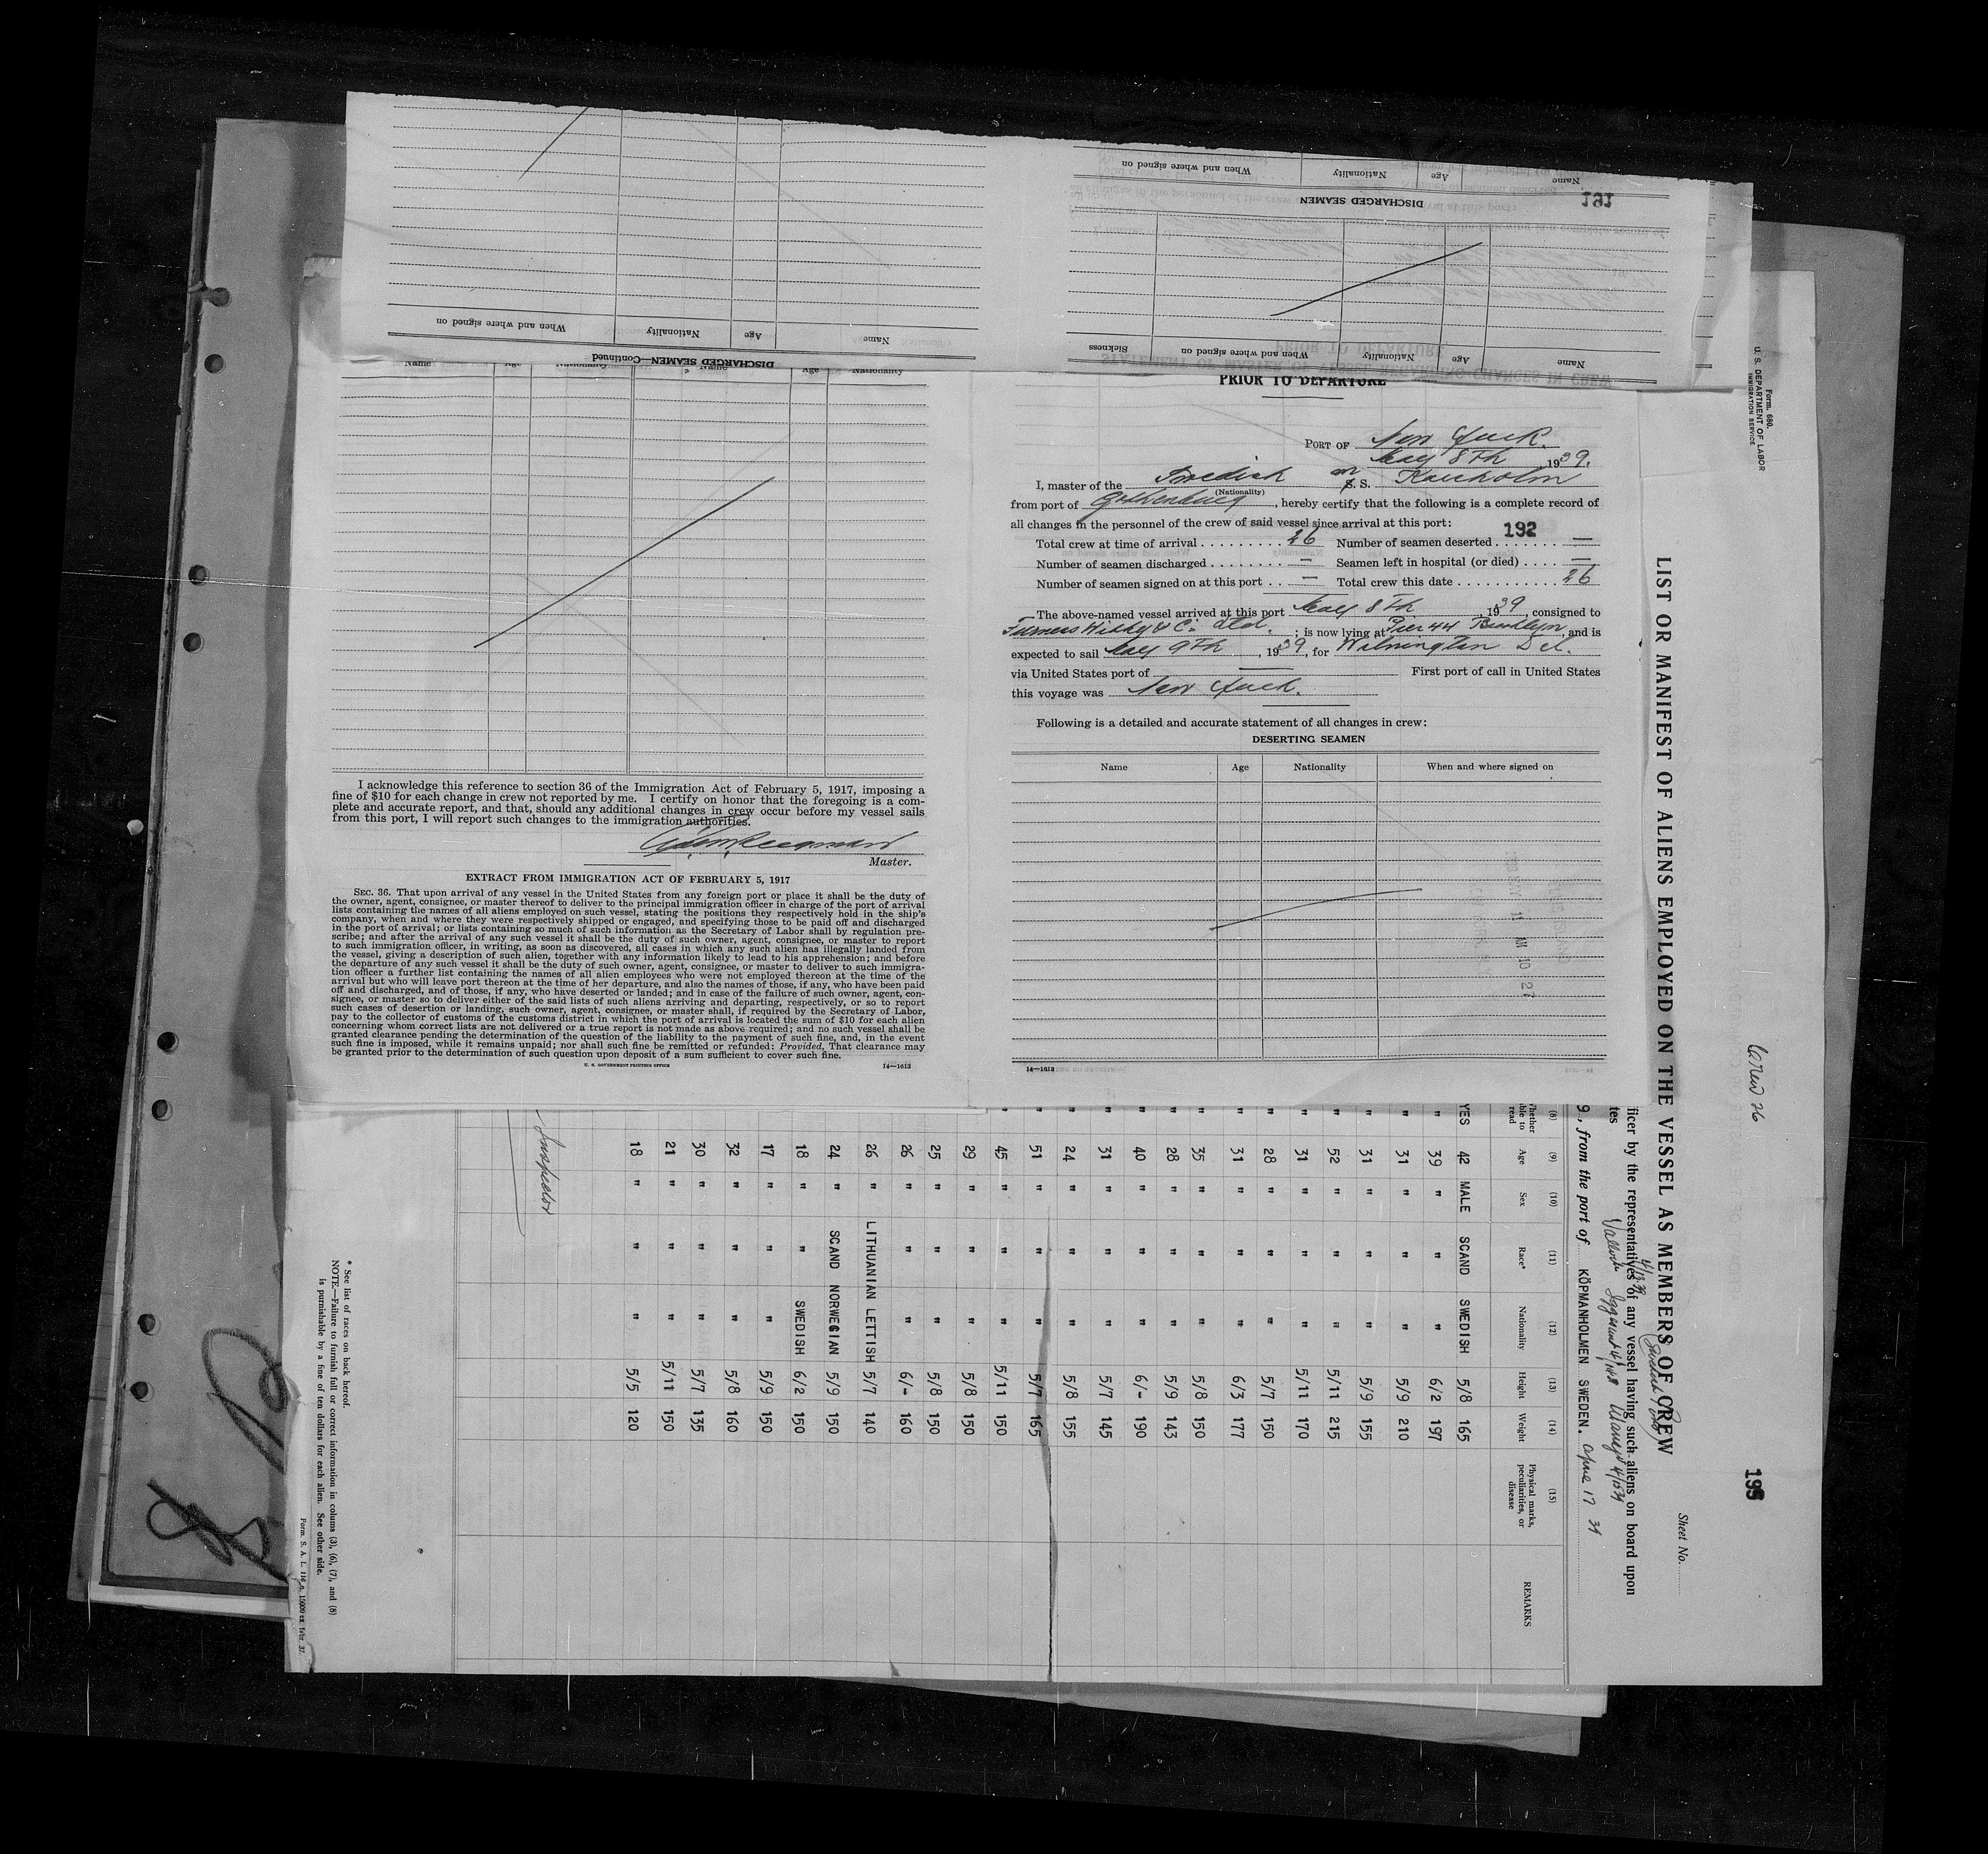 When and where signed on
Nationality
Age
Name
DISCHARGED SEAMEN—Continued
When and where signed on
Nationality
Age
Name
191
DISCHARGED SEAMEN
Sickness
When and where signed on
Nationality
Age
Name
Name Age Nationality Name Age Nationality
I acknowledge this reference to section 36 of the Immigration Act of February 5, 1917, imposing a
fine of $10 for each change in crew not reported by me. I certify on honor that the foregoing is a com-
plete and accurate report, and that, should any additional changes in crew occur before my vessel sails
from this port, I will report such changes to the immigration authorities.
Master.
EXTRACT FROM IMMIGRATION ACT OF FEBRUARY 5, 1917
SEC. 36. That upon arrival of any vessel in the United States from any foreign port or place it shall be the duty of
the owner, agent, consignee, or master thereof to deliver to the principal immigration officer in charge of the port of arrival
lists containing the names of all aliens employed on such vessel, stating the positions they respectively hold in the ship's
company, when and where they were respectively shipped or engaged, and specifying those to be paid off and discharged
in the port of arrival; or lists containing so much of such information as the Secretary of Labor shall by regulation pre-
scribe; and after the arrival of any such vessel it shall be the duty of such owner, agent, consignee, or master to report
to such immigration officer, in writing, as soon as discovered, all cases in which any such alien has illegally landed from
the vessel, giving a description of such alien, together with any information likely to lead to his apprehension; and before
the departure of any such vessel it shall be the duty of such owner, agent, consignee, or master to deliver to such immigra-
tion officer a further list containing the names of all alien employees who were not employed thereon at the time of the
arrival but who will leave port thereon at the time of her departure, and also the names of those, if any, who have been paid
off and discharged, and of those, if any, who have deserted or landed; and in case of the failure of such owner, agent, con-
signee, or master so to deliver either of the said lists of such aliens arriving and departing, respectively, or so to report
such cases of desertion or landing, such owner, agent, consignee, or master shall, if required by the Secretary of Labor,
pay to the collector of customs of the customs district in which the port of arrival is located the sum of $10 for each alien
concerning whom correct lists are not delivered or a true report is not made as above required; and no such vessel shall be
granted clearance pending the determination of the question of the liability to the payment of such fine, and, in the event
such fine is imposed, while it remains unpaid; nor shall such fine be remitted or refunded: Provided, That clearance may
be granted prior to the determination of such question upon deposit of a sum sufficient to cover such fine.
U. S. GOVERNMENT PRINTING OFFICE 14—1613
PRIOR TO DEPARTURE
PORT OF New York.
May 8th, 1939.
I, master of the Swedish S. S.
(Nationality)
from port of Gothenburg, hereby certify that the following is a complete record of
all changes in the personnel of the crew of said vessel since arrival at this port:
192
Total crew at time of arrival 26 Number of seamen deserted —
Number of seamen discharged — Seamen left in hospital (or died) —
Number of seamen signed on at this port — Total crew this date 26
The above-named vessel arrived at this port May 8th, 1939, consigned to
Furness Withy & Co. Ltd.; is now lying at Pier 44 Brooklyn, and is
expected to sail May 9th, 1939, for Wilmington Del.
via United States port of — First port of call in United States
this voyage was New York.
Following is a detailed and accurate statement of all changes in crew:
DESERTING SEAMEN
Name Age Nationality When and where signed on
14—1613
Form. 680.
U. S. DEPARTMENT OF LABOR
IMMIGRATION SERVICE
Crew 26
Sheet No.
LIST OR MANIFEST OF ALIENS EMPLOYED ON THE VESSEL AS MEMBERS OF CREW
ficer by the representatives of any vessel having such aliens on board upon
tes
9, from the port of KÖPMANHOLMEN SWEDEN. April 17 39
(8) (9) (10) (11) (12) (13) (14) (15)
Whether able to read Age Sex Race* Nationality Height Weight Physical marks, peculiarities, or disease REMARKS
YES 42 MALE SCAND SWEDISH 5/8 165
" 39 " " " 6/2 197
" 31 " " " 5/9 210
" 31 " " " 5/9 155
" 52 " " " 5/11 215
" 31 " " " 5/11 170
" 28 " " " 5/7 150
" 31 " " " 6/3 177
" 35 " " " 5/8 150
" 28 " " " 5/9 143
" 40 " " " 6/- 190
" 31 " " " 5/7 145
" 24 " " " 5/8 155
" 51 " " " 5/7 165
" 45 " " " 5/11 150
" 29 " " " 5/8 150
" 25 " " " 5/8 150
" 26 " " " 6/- 160
" 26 " LITHUANIAN LETTISH 5/7 140
" 24 " SCAND NORWEGIAN 5/9 150
" 18 " " SWEDISH 6/2 150
" 17 " " " 5/9 150
" 32 " " " 5/8 160
" 30 " " " 5/7 135
" 21 " " " 5/11 150
" 18 " " " 5/5 120
Inspector
* See list of races on back hereof.
NOTE.—Failure to furnish full or correct information in colums (3), (6), (7), and (8)
is punishable by a fine of ten dollars for each alien. See other side.
Form. S. A. L. 116 a. 15000 ex. febr. 37.